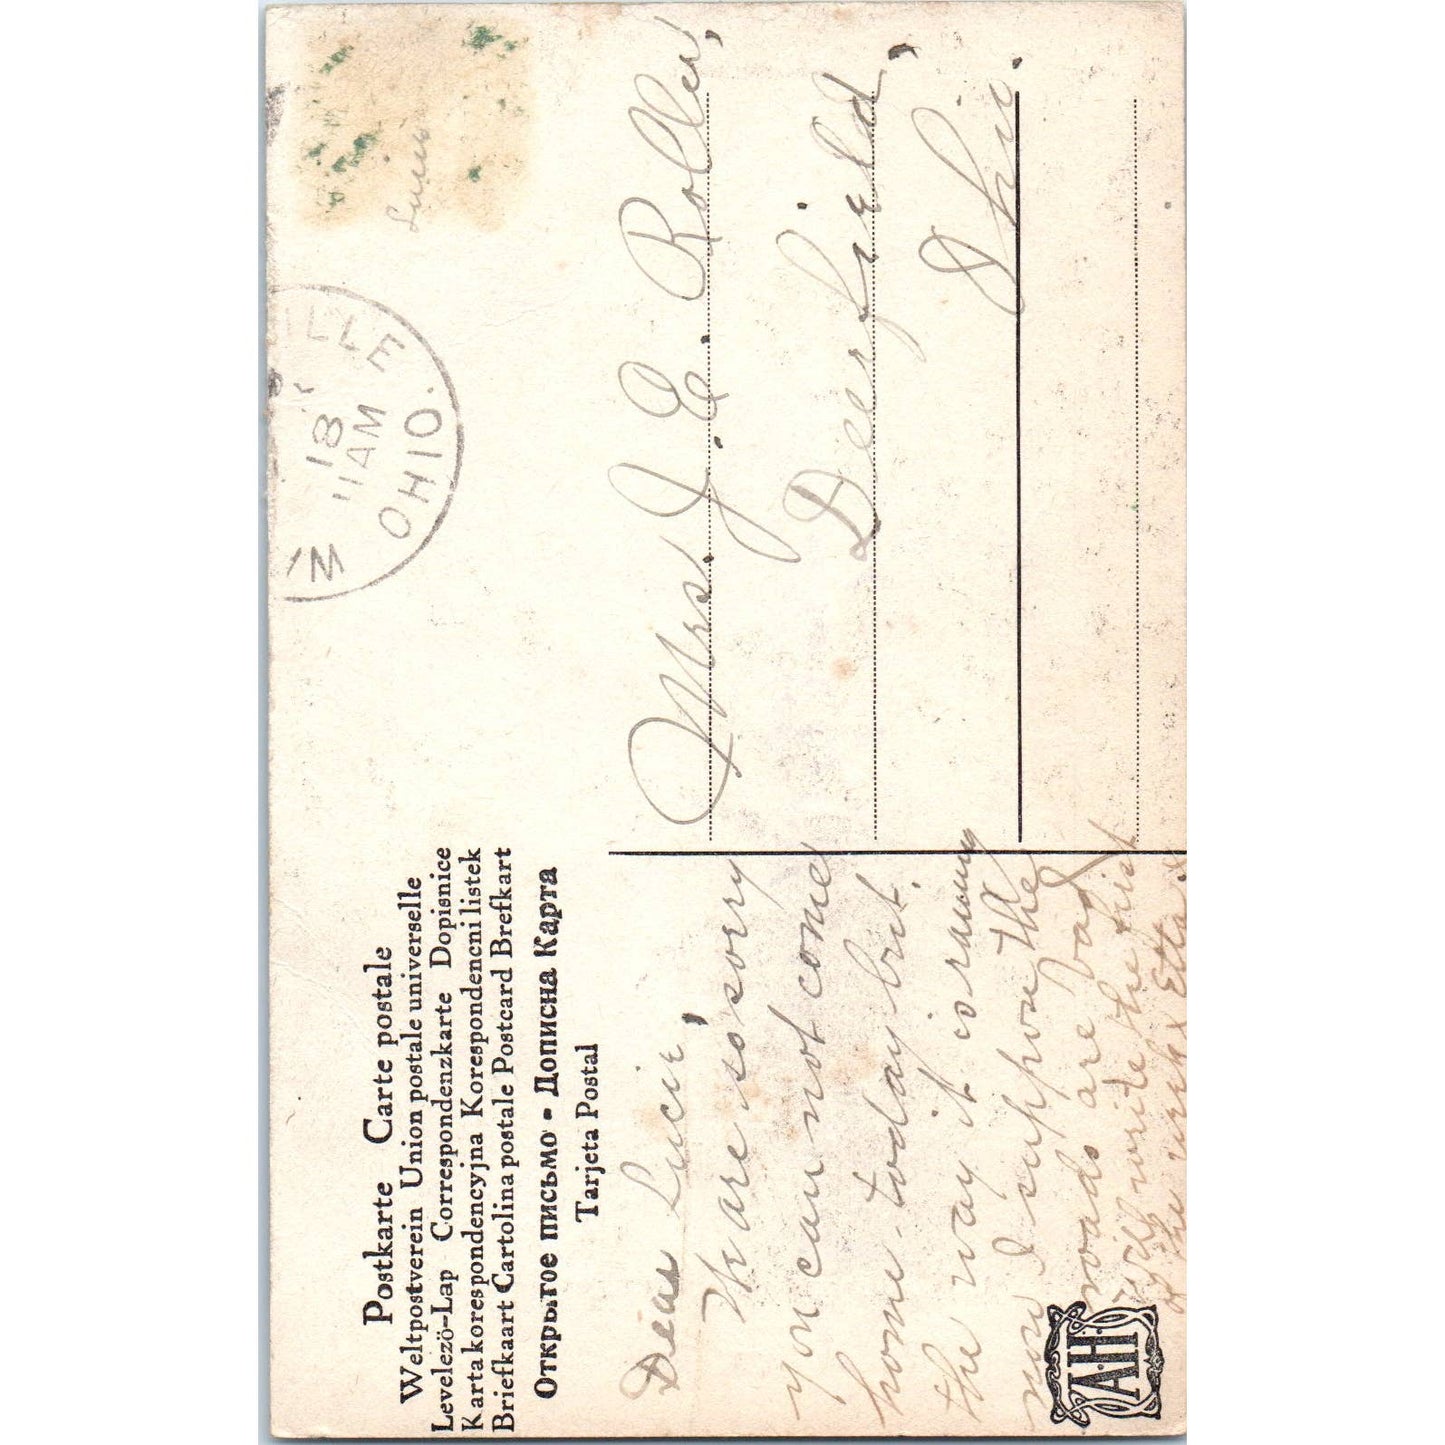 Postkarte Carte postale
Weltpostverein Union postale universelle
Levelezö-Lap Correspondenzkarte Dopisnice
Karta korespondencyjna Korespondencni listek
Briefkaart Cartolina postale Postcard Brefkart
Открытое письмо - Дописна Карта
Tarjeta Postal
ILLE
18
11 AM
OHIO.
Mrs. J. E. Roller,
Deerfield,
Ohio.
Dear Lucie,
We are so sorry
you can not come
home today but
the way it is raining
now I suppose the
roads are bad
will write the first
of the week Etta
A.H.